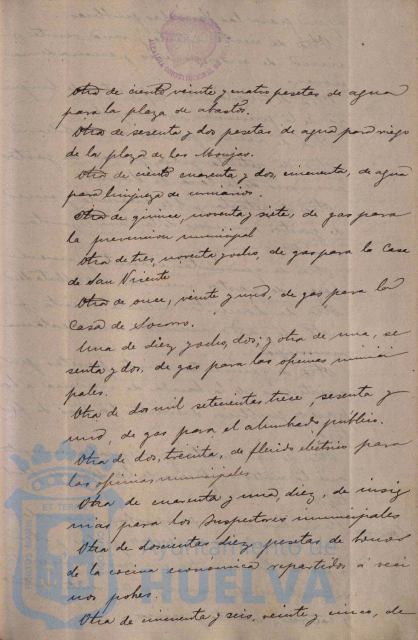 Otra de ciento veinte y cuatro pesetas de agua
para la plaza de abastos.
Otra de sesenta y dos pesetas de agua para riego
de la plaza de las Monjas.
Otra de ciento cuarenta y dos, cincuenta, de agua
para limpieza de urinarios.
Otra de quince, noventa y siete, de gas para
la prevencion municipal
Otra de tres, noventa y ocho, de gas para la Casa
de San Vicente
Otra de once, veinte y uno, de gas para la
Casa de Socorro.
Una de diez y ocho, dos; y otra de una, se
senta y dos, de gas para las oficinas munici
pales.
Otra de dos mil setecientas trece, sesenta y
uno, de gas para el alumbrado publico.
Otra de dos, treinta, de fluido electrico para
las oficinas municipales
Otra de cuarenta y una, diez, de insig
nias para los Inspectores municipales
Otra de doscientas diez pesetas de bonos
de la cocina economica repartidos a veci
nos pobres.
Otra de cincuenta y seis, veinte y cinco, de
Ayuntamiento de
HUELVA